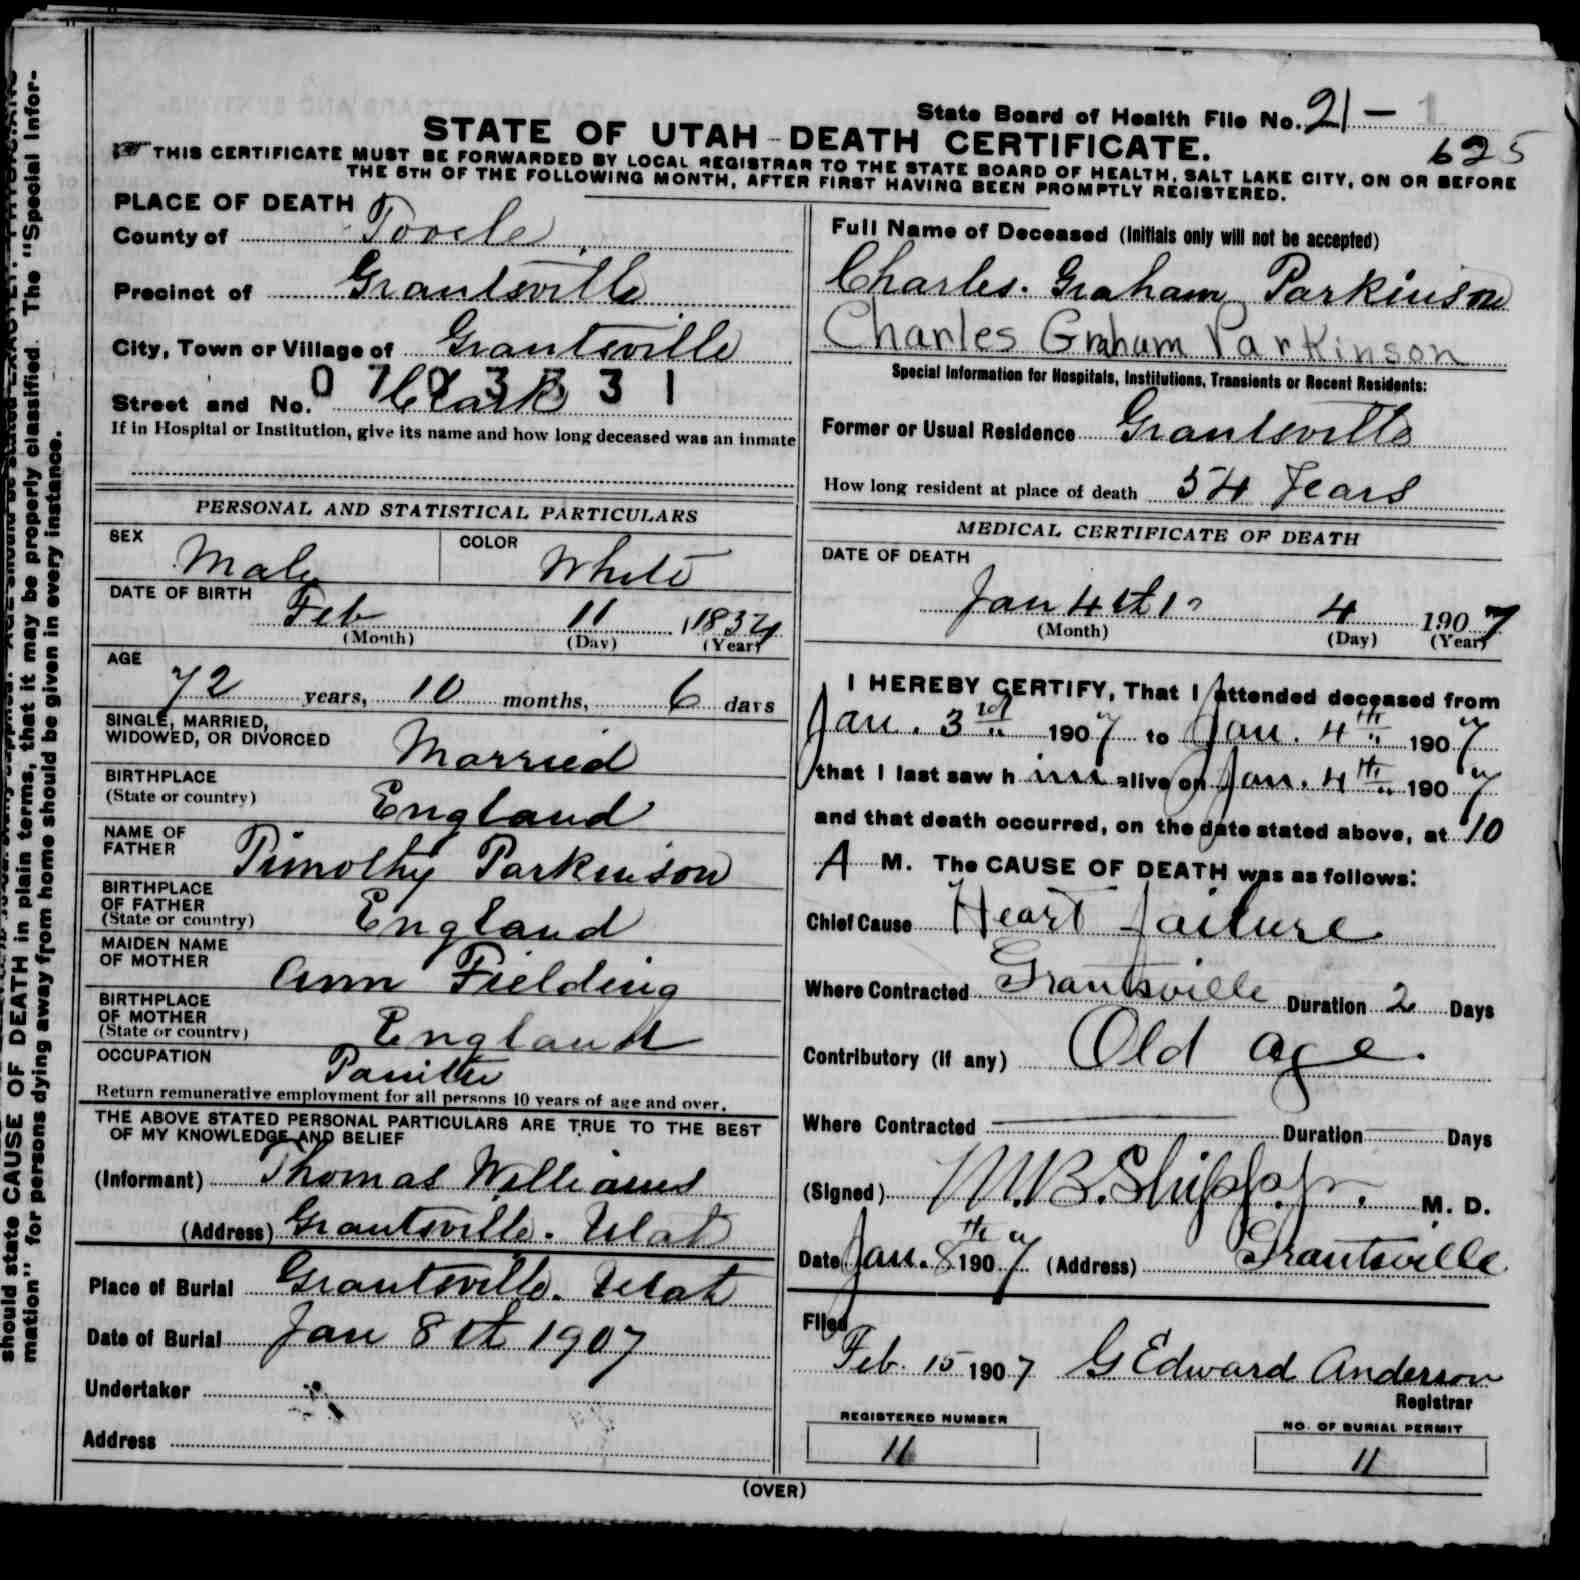 State Board of Health File No. 21 - 1
625
STATE OF UTAH - DEATH CERTIFICATE.
THIS CERTIFICATE MUST BE FORWARDED BY LOCAL REGISTRAR TO THE STATE BOARD OF HEALTH, SALT LAKE CITY, ON OR BEFORE
THE 5TH OF THE FOLLOWING MONTH, AFTER FIRST HAVING BEEN PROMPTLY REGISTERED.
PLACE OF DEATH
County of Tooele
Precinct of Grantsville
City, Town or Village of Grantsville
Street and No. Clark
If in Hospital or Institution, give its name and how long deceased was an inmate
PERSONAL AND STATISTICAL PARTICULARS
SEX Male COLOR White
DATE OF BIRTH Feb 11 1834
(Month) (Day) (Year)
AGE
72 years, 10 months, 6 days
SINGLE, MARRIED,
WIDOWED, OR DIVORCED Married
BIRTHPLACE
(State or country) England
NAME OF
FATHER Timothy Parkinson
BIRTHPLACE
OF FATHER
(State or country) England
MAIDEN NAME
OF MOTHER Ann Fielding
BIRTHPLACE
OF MOTHER
(State or country) England
OCCUPATION
Return remunerative employment for all persons 10 years of age and over.
THE ABOVE STATED PERSONAL PARTICULARS ARE TRUE TO THE BEST
OF MY KNOWLEDGE AND BELIEF
(Informant) Thomas Williams
(Address) Grantsville. Utah
Place of Burial Grantsville. Utah
Date of Burial Jan 8th 1907
Undertaker
Address
Full Name of Deceased (Initials only will not be accepted)
Charles. Graham Parkinson
Charles Graham Parkinson
Special Information for Hospitals, Institutions, Transients or Recent Residents:
Former or Usual Residence Grantsville
How long resident at place of death 54 Years
MEDICAL CERTIFICATE OF DEATH
DATE OF DEATH
Jan 4th 4 1907
(Month) (Day) (Year)
I HEREBY CERTIFY, That I attended deceased from
Jan. 3rd 1907 to Jan. 4th 1907
that I last saw h im alive on Jan. 4th 1907
and that death occurred, on the date stated above, at 10
A M. The CAUSE OF DEATH was as follows:
Chief Cause Heart failure
Where Contracted Grantsville Duration 2 Days
Contributory (if any) Old age.
Where Contracted Duration Days
(Signed) M.B. Shipp Jr. M. D.
Date Jan. 8th 1907 (Address) Grantsville
Filed
Feb. 15 1907 G Edward Anderson
Registrar
REGISTERED NUMBER
11
NO. OF BURIAL PERMIT
11
(OVER)
should state CAUSE OF DEATH in plain terms, that it may be properly classified. The "Special Infor-
mation" for persons dying away from home should be given in every instance.